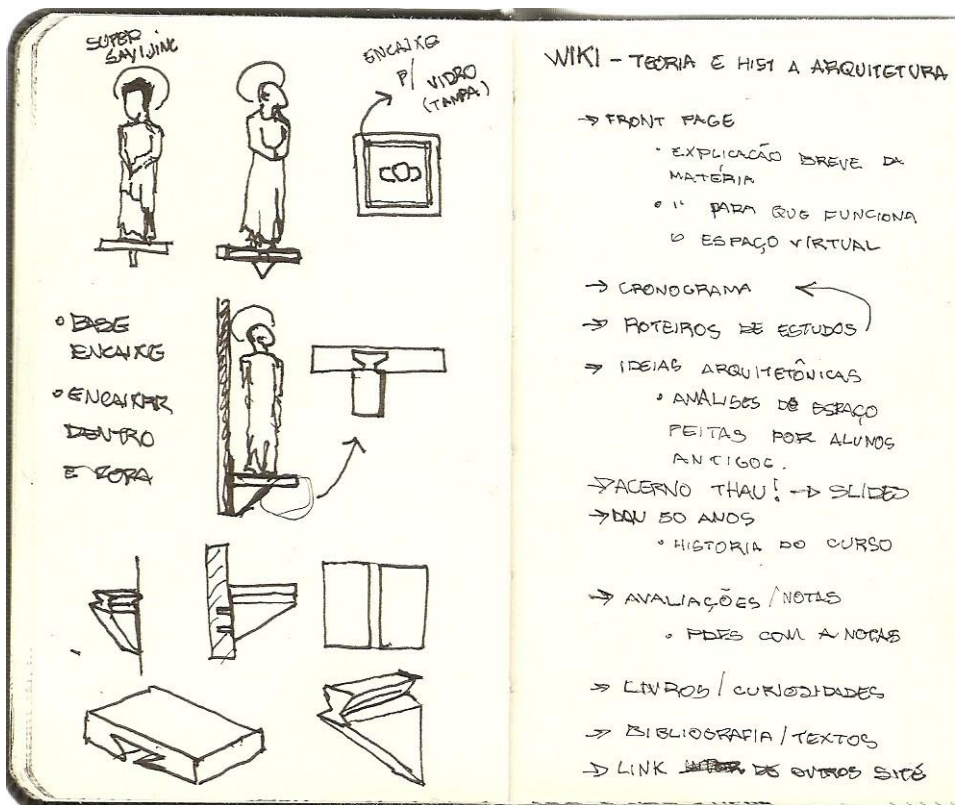 SUPER
ENCAIXE
P/ VIDRO
(TAMPA)
• BASE
ENCAIXE
• ENCAIXAR
DENTRO
E FORA
WIKI - TEORIA E HIST A ARQUITETURA
→ FRONT PAGE
• EXPLICAÇÃO BREVE DA
MATÉRIA
• 1" PARA QUE FUNCIONA
O ESPAÇO VIRTUAL
→ CRONOGRAMA
→ ROTEIROS DE ESTUDOS
→ IDEIAS ARQUITETÔNICAS
• ANÁLISES DE ESPAÇO
FEITAS POR ALUNOS
ANTIGOS.
→ ACERVO THAU! → SLIDES
→ DAU 50 ANOS
• HISTORIA DO CURSO
→ AVALIAÇÕES / NOTAS
• PDFS COM A NOTAS
→ LIVROS / CURIOSIDADES
→ BIBLIOGRAFIA / TEXTOS
→ LINK DE OUTROS SITES